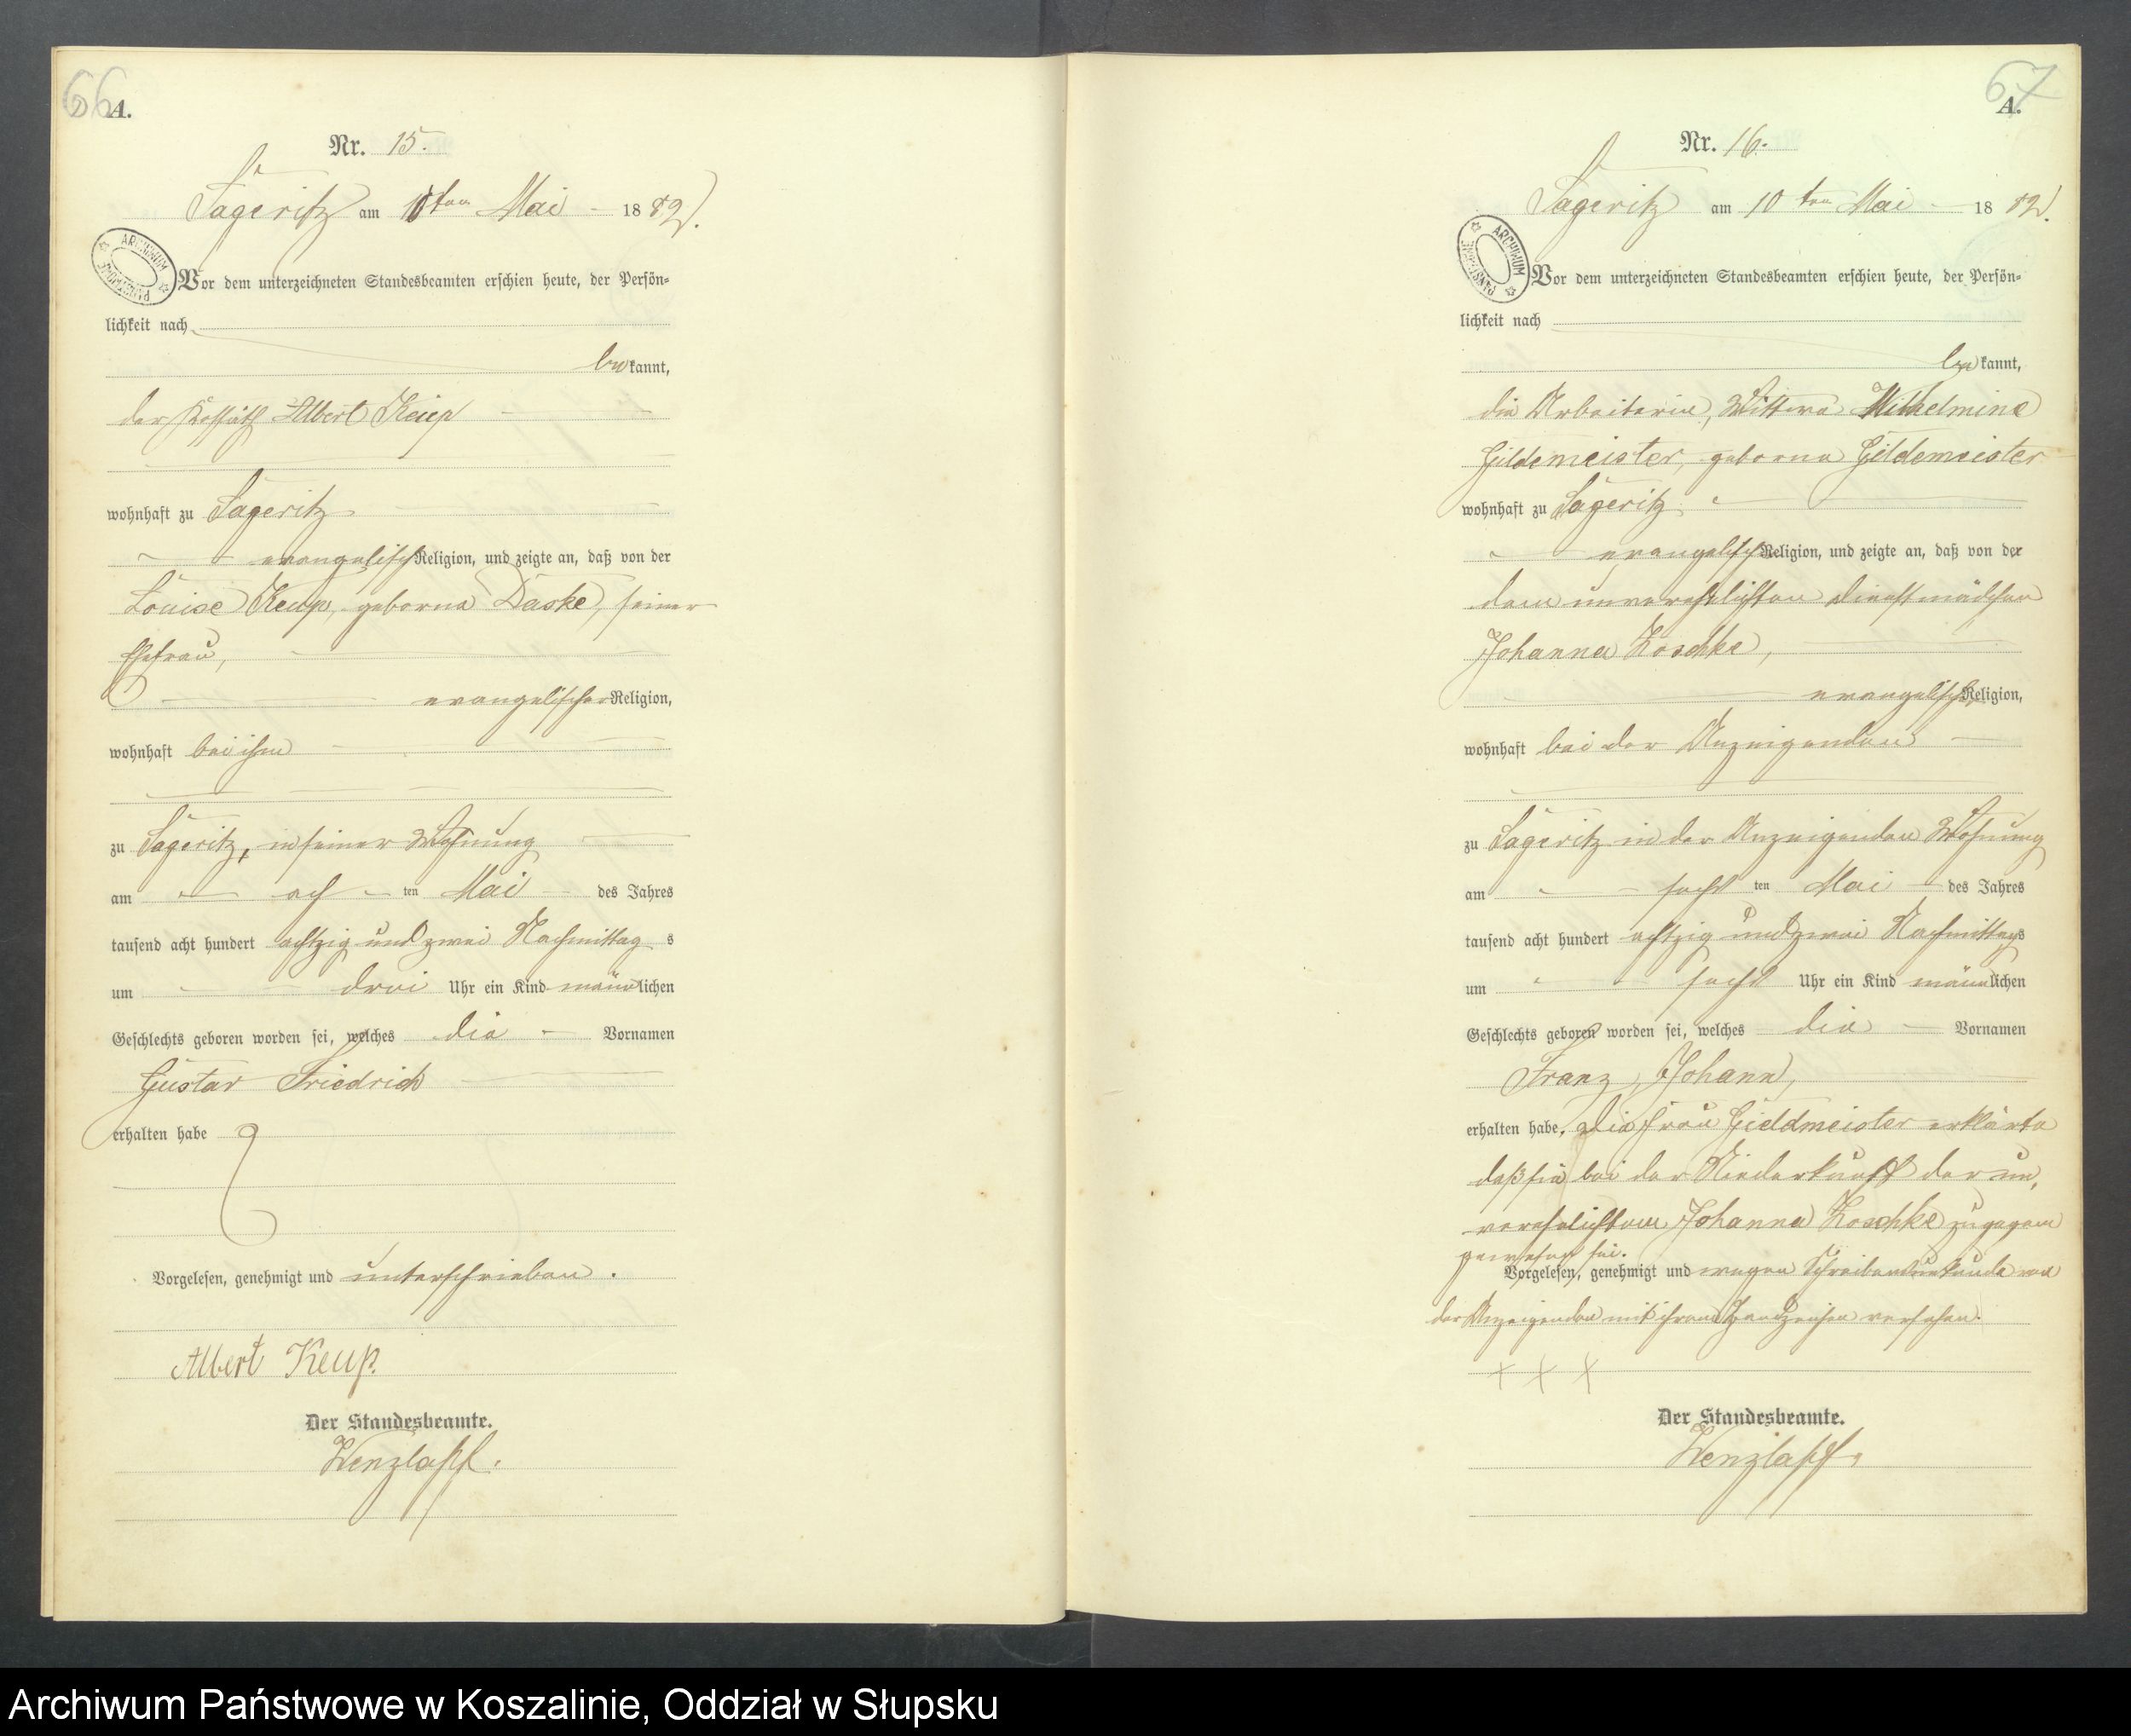 66
A.
Nr. 15.
Sageritz am 10ten Mai 1882.
ARCHIWUM PAŃSTWOWE
Vor dem unterzeichneten Standesbeamten erschien heute, der Persön-
lichkeit nach
bekannt,
der Kossäth Albert Keup
wohnhaft zu Sageritz
evangelisch Religion, und zeigte an, daß von der
Louise Keup, geborne Daske, seiner
Ehefrau,
evangelischer Religion,
wohnhaft bei ihm
zu Sageritz, in seiner Wohnung
am ach ten Mai des Jahres
tausend acht hundert achtzig und zwei Nachmittag s
um drei Uhr ein Kind männlichen
Geschlechts geboren worden sei, welches die Vornamen
Gustav Friedrich
erhalten habe
Vorgelesen, genehmigt und unterschrieben.
Albert Keup.
Der Standesbeamte.
Wenzlaff.
67
A.
Nr. 16.
Sageritz am 10 ten Mai 1882.
ARCHIWUM PAŃSTWOWE
Vor dem unterzeichneten Standesbeamten erschien heute, der Persön-
lichkeit nach
bekannt,
die Arbeiterin, Wittwe Wilhelmine
Gildemeister, geborne Gildemeister
wohnhaft zu Sageritz
evangelisch Religion, und zeigte an, daß von der
dem unverehelichten Dienstmädchen
Johanna Koschke,
evangelischer Religion,
wohnhaft bei der Anzeigenden
zu Sageritz in der Anzeigenden Wohnung
am sechs ten Mai des Jahres
tausend acht hundert achtzig und zwei Nachmittags
um sechs Uhr ein Kind männlichen
Geschlechts geboren worden sei, welches die Vornamen
Franz, Johann,
erhalten habe. Die Frau Gieldmeister erklärte
daß sie bei der Niederkunft der un,
verehelichten Johanna Koschke zugegen
gewesen sei.
Vorgelesen, genehmigt und wegen Schreibensunkunde von
der Anzeigenden mit ihrem Handzeichen versehen.
+ + +
Der Standesbeamte.
Wenzlaff.
Archiwum Państwowe w Koszalinie, Oddział w Słupsku